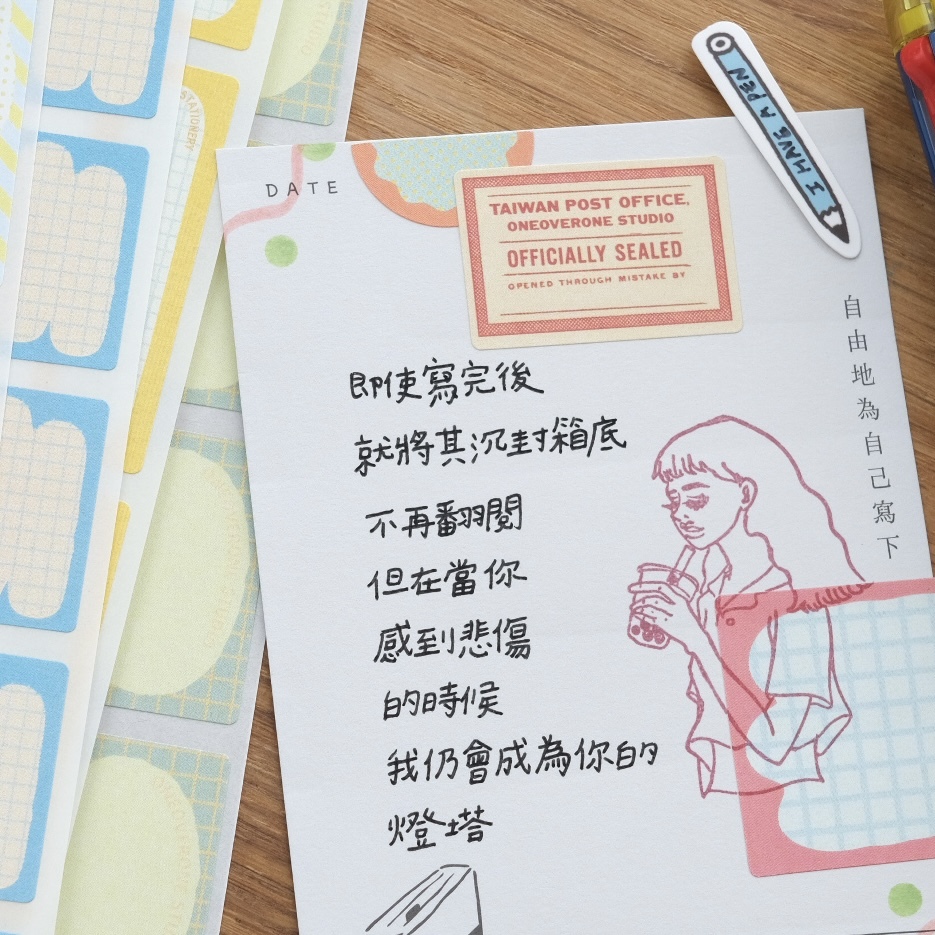 DATE
TAIWAN POST OFFICE,
ONEOVERONE STUDIO
OFFICIALLY SEALED
OPENED THROUGH MISTAKE BY
I HAVE A PEN
自由地為自己寫下
即使寫完後
就將其沉封箱底
不再翻閱
但在當你
感到悲傷
的時候
我仍會成為你的
燈塔
STATIONERY